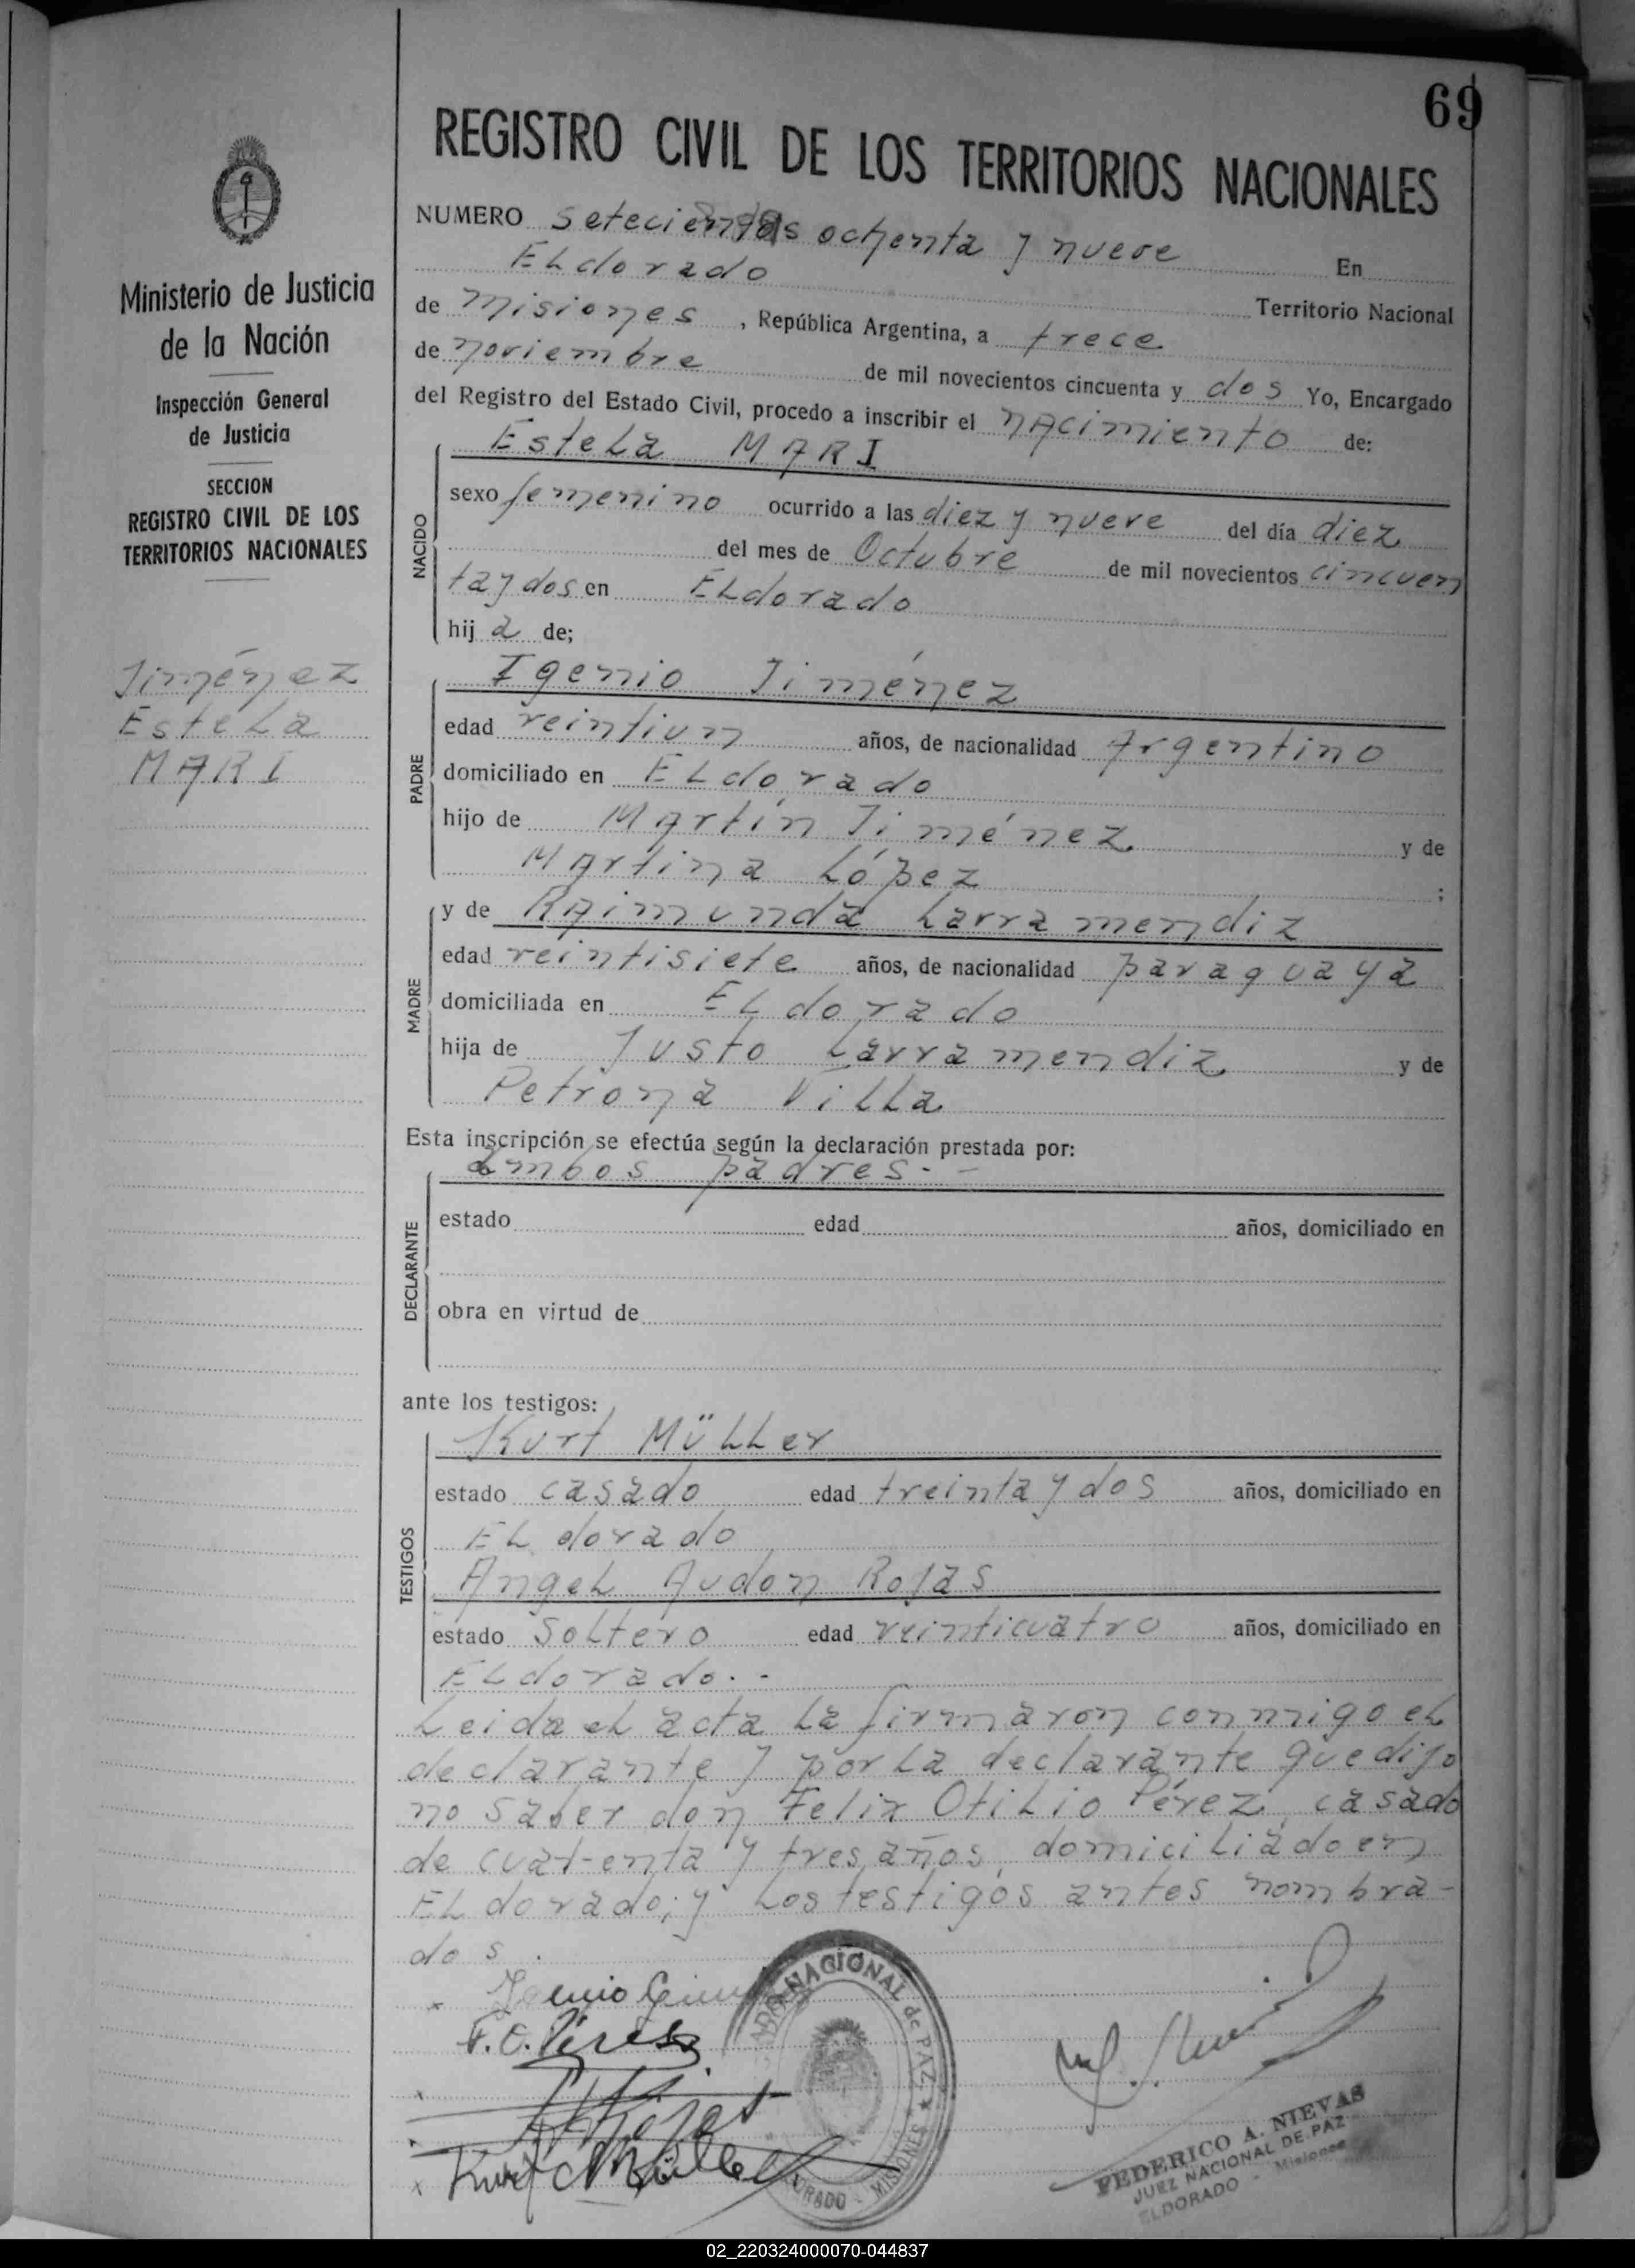 69
REGISTRO CIVIL DE LOS TERRITORIOS NACIONALES
Ministerio de Justicia
de la Nación
Inspección General
de Justicia
SECCION
REGISTRO CIVIL DE LOS
TERRITORIOS NACIONALES
Jiménez
Estela
MARI
NUMERO setecientos ochenta y nueve
En
Eldorado
Territorio Nacional
de Misiones, República Argentina, a trece
de noviembre de mil novecientos cincuenta y dos Yo, Encargado
del Registro del Estado Civil, procedo a inscribir el nacimiento de:
NACIDO
Estela MARI
sexo femenino ocurrido a las diez y nueve del día diez
del mes de Octubre de mil novecientos cincuen
ta y dos en Eldorado
hija de;
PADRE
Igenio Jiménez
edad veintiun años, de nacionalidad Argentino
domiciliado en Eldorado
hijo de Martín Jiménez y de
Martina López ;
MADRE
y de Raimunda Larramendiz
edad veintisiete años, de nacionalidad paraguaya
domiciliada en Eldorado
hija de Justo Larramendiz y de
Petrona Villa
Esta inscripción se efectúa según la declaración prestada por:
DECLARANTE
ambos padres.-
estado edad años, domiciliado en
obra en virtud de
ante los testigos:
TESTIGOS
Kurt Müller
estado casado edad treinta y dos años, domiciliado en
Eldorado
Angel Audon Rojas
estado soltero edad veinticuatro años, domiciliado en
Eldorado.-
Leida el acta la firmaron conmigo el
declarante y por la declarante que dijo
no saber don Felix Otilio Pérez, casado
de cuarenta y tres años, domiciliado en
Eldorado; y los testigos antes nombra-
dos.
F.O. Pérez
Rojas
Kurt Müller
NACIONAL de PAZ
MISIONES
FEDERICO A. NIEVAS
JUEZ NACIONAL DE PAZ
ELDORADO - Misiones
02_220324000070-044837